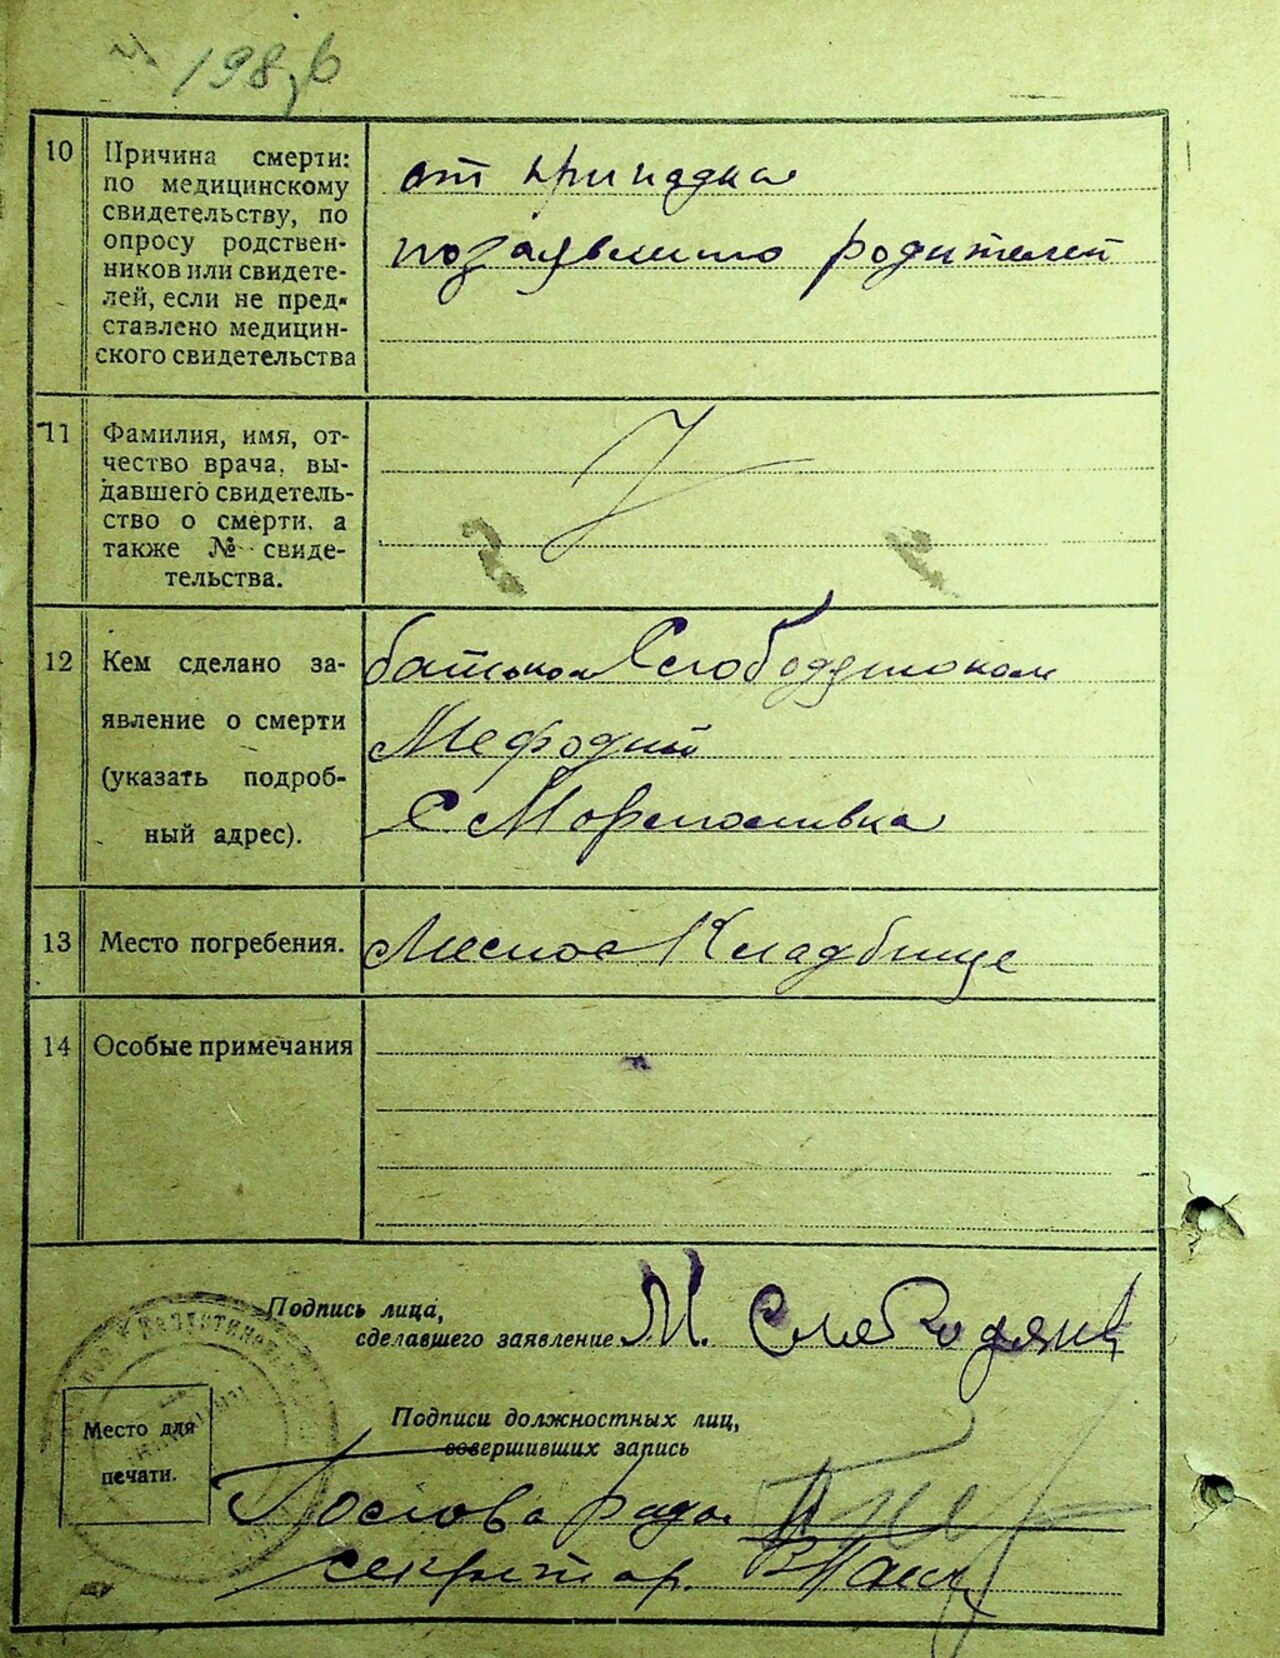 198,б
10 Причина смерти:
по медицинскому
свидетельству, по
опросу родствен-
ников или свидете-
лей, если не пред-
ставлено медицин-
ского свидетельства
от припадка
по заявлению родителей
11 Фамилия, имя, от-
чество врача, вы-
давшего свидетель-
ство о смерти, а
также № свиде-
тельства.
12 Кем сделано за-
явление о смерти
(указать подроб-
ный адрес).
батьком Слободянюком
Мефодий
С.
13 Место погребения.
Кладбище
14 Особые примечания
Подпись лица,
сделавшего заявление М. Слободянюк
Место для
печати.
Подписи должностных лиц,
совершивших запись
Голова ради
секретар.